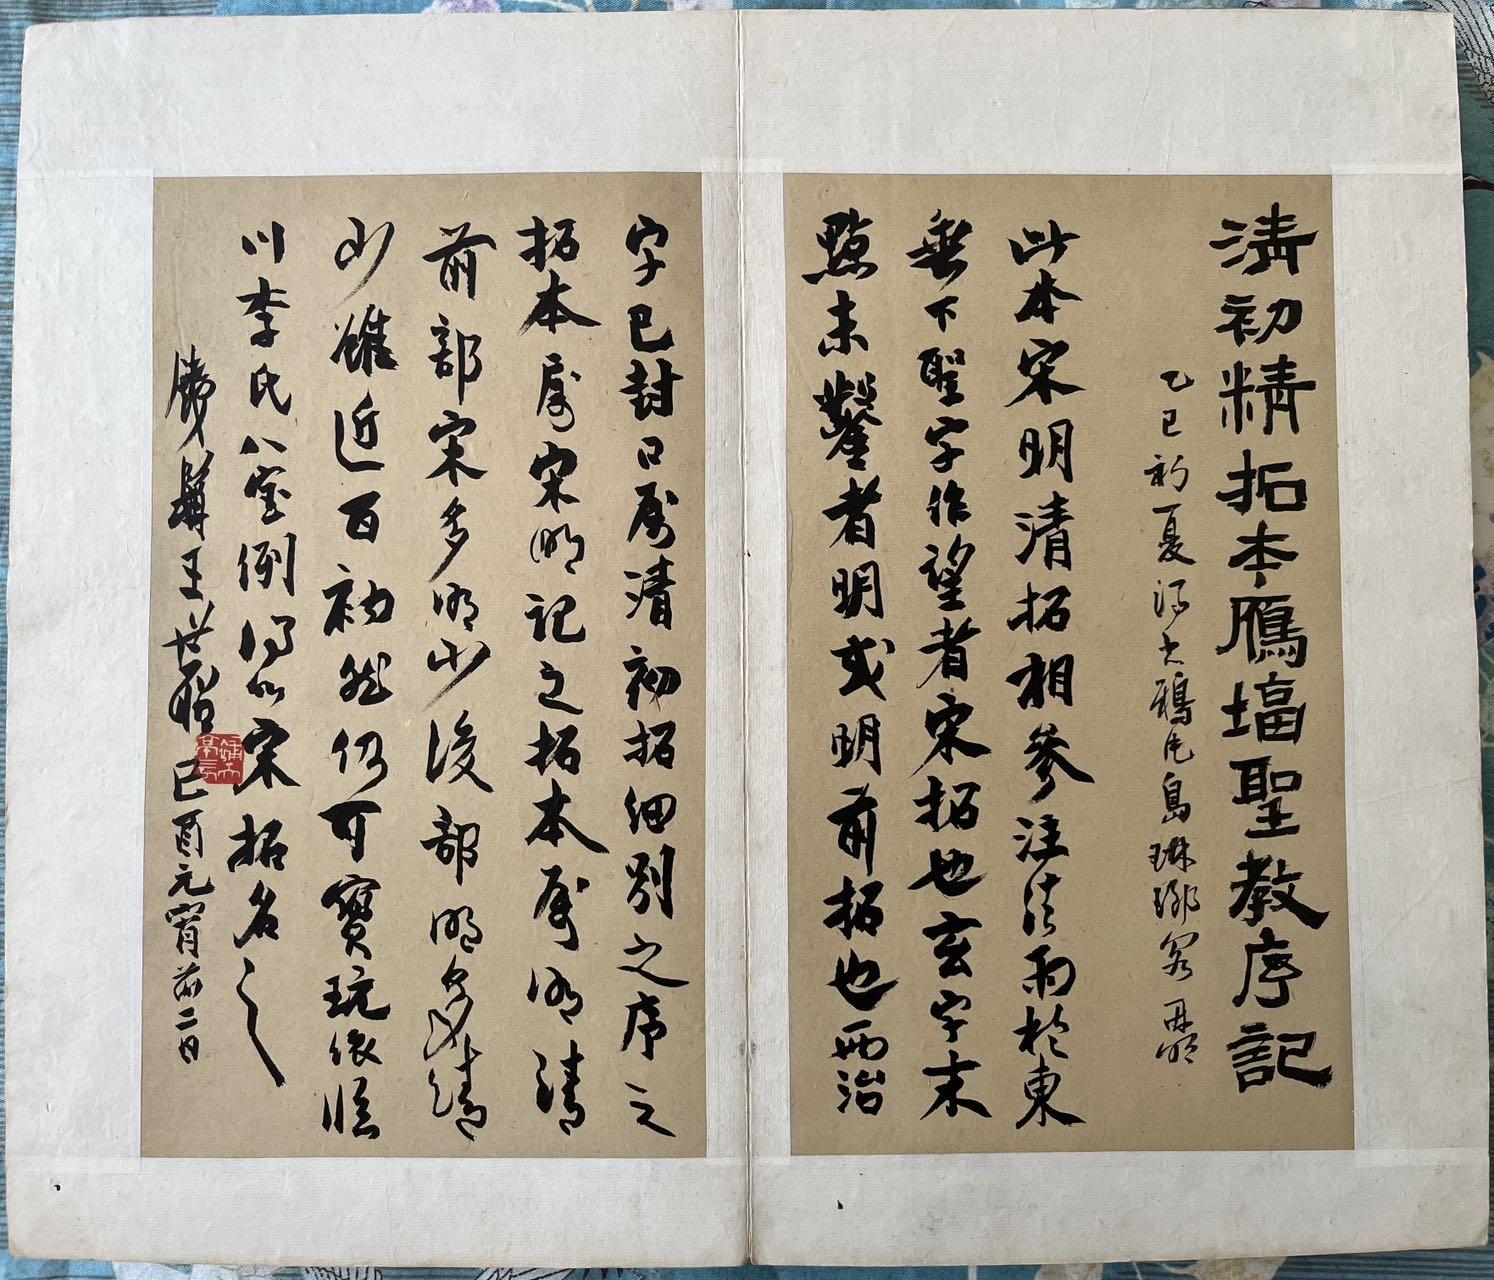 清初精拓本雁塔聖教序記
乙巳初夏得大鵝先島琳瑯客
此本宋明清拓相參注法雨於東
垂下聖字作望者宋拓也玄字末
點未鑿者明或明前拓也西治
字已封口屬清初拓細別之序之
拓本屬宋明記之拓本屬明清
前部宋多明少後部明多清
少雖近百衲然仍可寶玩依臨
川李氏八寶例得以宋拓名之
王世 己酉元宵前二日